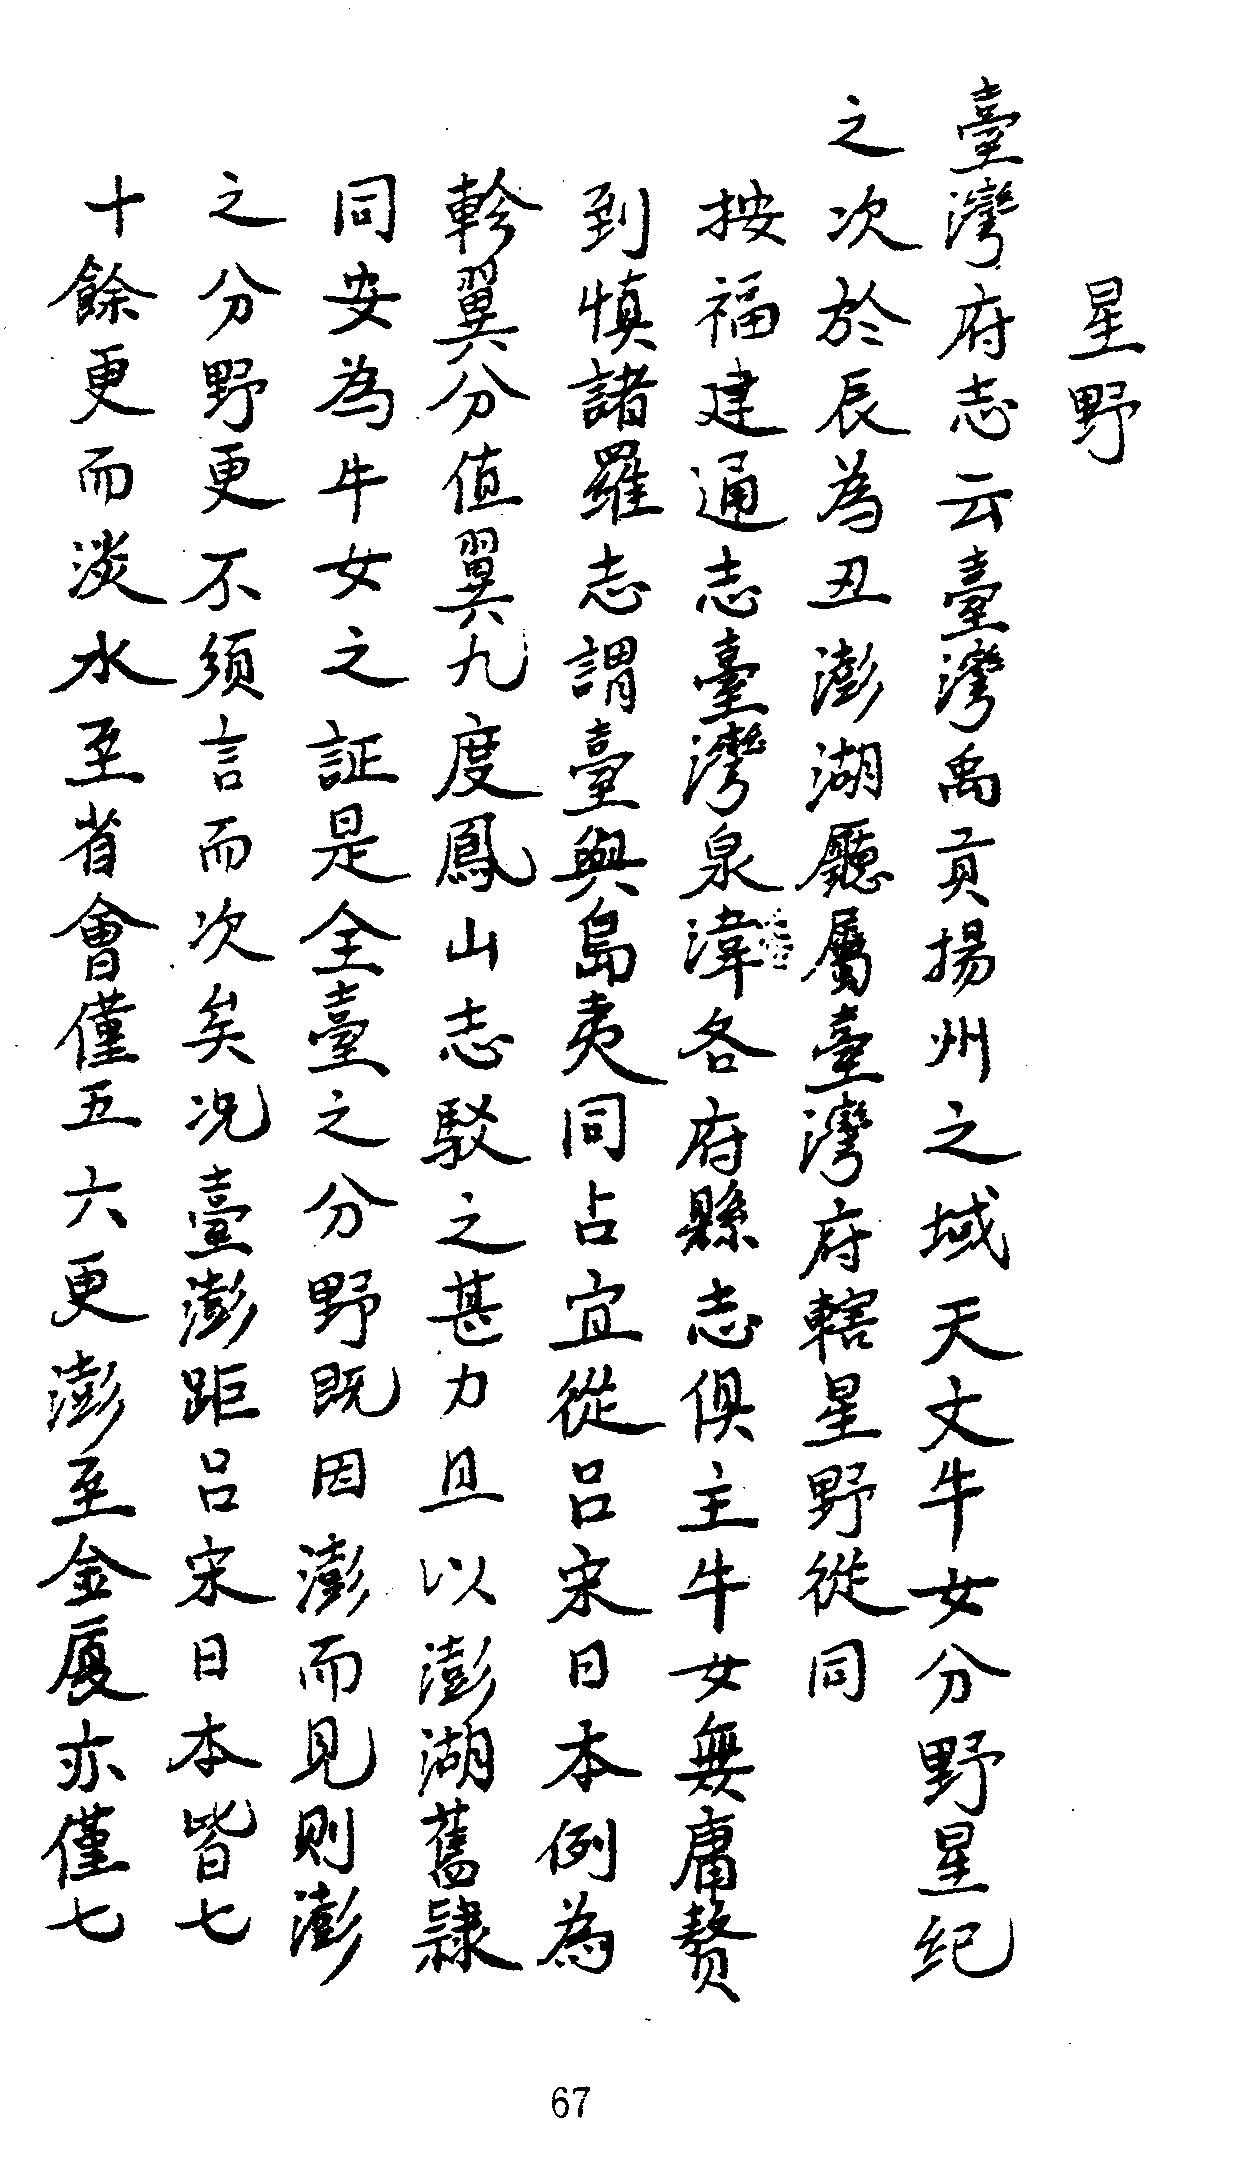 星野
臺灣府志云臺灣禹貢揚州之域天文牛女分野星紀
之次於辰為丑澎湖廳屬臺灣府轄星野從同
按福建通志臺灣泉漳各府縣志俱主牛女無庸贅
到慎諸羅志謂臺與島夷同占宜從呂宋日本例為
軫翼分值翼九度鳳山志駁之甚力且以澎湖舊隸
同安為牛女之証是全臺之分野既因澎而見則澎
之分野更不須言而次矣况臺澎距呂宋日本皆七
十餘更而淡水至省會僅五六更澎至金厦亦僅七
67